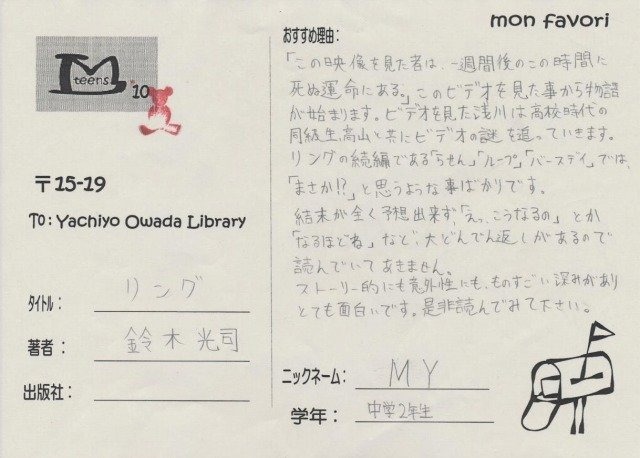 mon favori
M
teens
'10
〒15-19
To: Yachiyo Owada Library
タイトル: リング
著者: 鈴木光司
出版社:
おすすめ理由:
「この映像を見た者は、一週間後のこの時間に
死ぬ運命にある。」このビデオを見た事から物語
が始まります。ビデオを見た浅川は高校時代の
同級生高山と共にビデオの謎を追っていきます。
リングの続編である「らせん」「ループ」「バースデイ」では、
「まさか!?」と思うような事ばかりです。
結末が全く予想出来ず「えっ、こうなるの」とか
「なるほどね」など、大どんでん返しがあるので
読んでいてあきません。
ストーリー的にも意外性にも、ものすごい深みがあり
とても面白いです。是非読んでみて下さい。
ニックネーム: MY
学年: 中学2年生